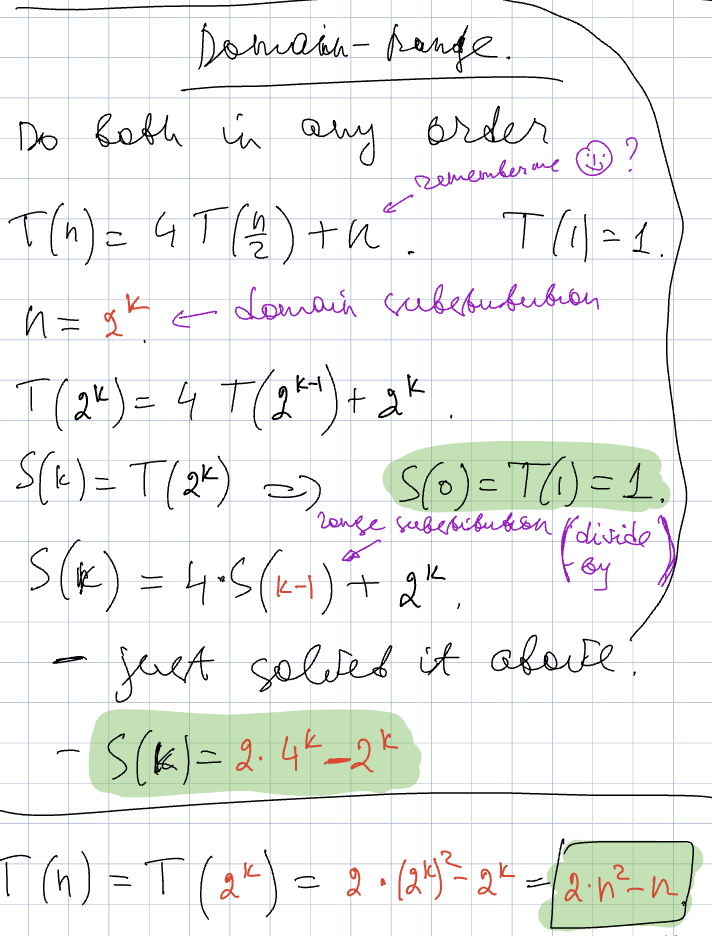 Domain-range.
Do both in any order
remember me ☺ ?
T(n) = 4 T(n/2) + n . T(1) = 1.
n = 2^k. ← domain substitution
T(2^k) = 4 T(2^(k-1)) + 2^k .
S(k) = T(2^k) => S(0) = T(1) = 1.
range substitution (divide by)
S(k) = 4·S(k-1) + 2^k .
- just solved it above.
- S(k) = 2·4^k - 2^k
T(n) = T(2^k) = 2·(2^k)^2 - 2^k = 2·n^2 - n